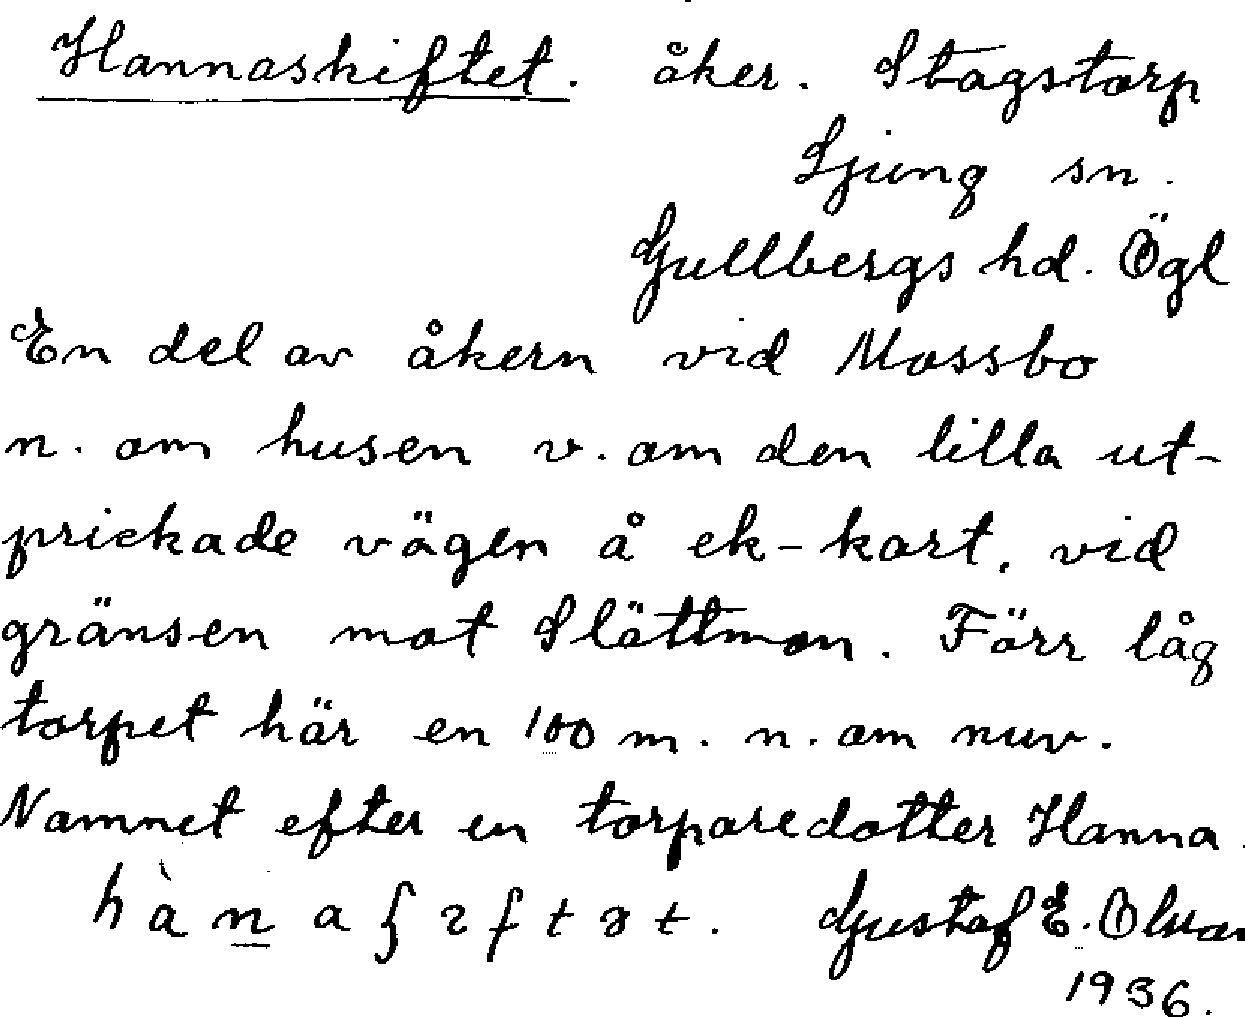 Hannaskiftet. åker. Stagstorp
Ljung sn.
Gullbergs hd. Ögl
En del av åkern vid Mossbo
n. om husen v. om den lilla ut-
prickade vägen å ek-kart, vid
gränsen mot Slättmon. Förr låg
torpet här en 100 m. n. om nuv.
Namnet efter en torparedotter Hanna.
Gustaf E.
1936.